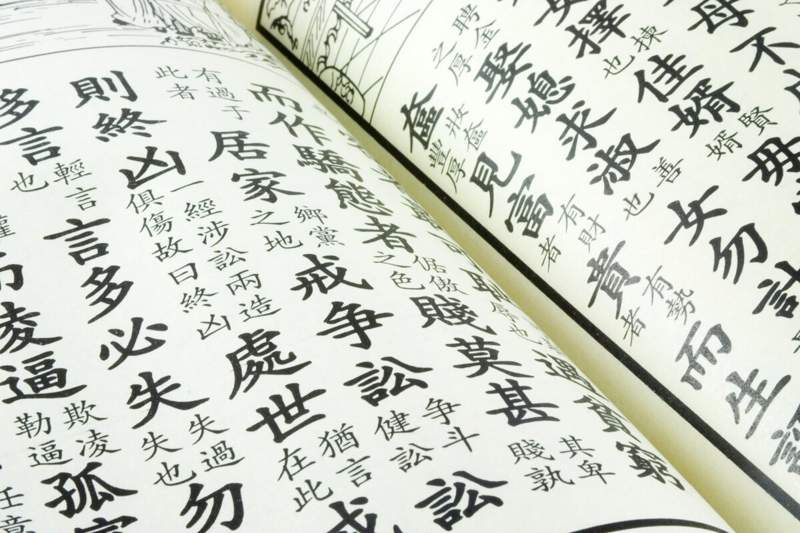 母不
女擇揀也佳婿賢婿毋
聘金之厚娶媳求淑善也女勿計
奩妝奩豐厚見富有財者貴有勢者而生諂
遇貧窮
而作驕態者倨傲之色賤莫甚其卑賤孰
有過于此者居家鄉黨之地戒争訟争斗健訟訟
則終凶一經涉訟兩造俱傷故曰終凶處世猶言在此戒
多言輕言也言多必失失過失也勿
而凌逼欺凌勒逼孤寡
任意